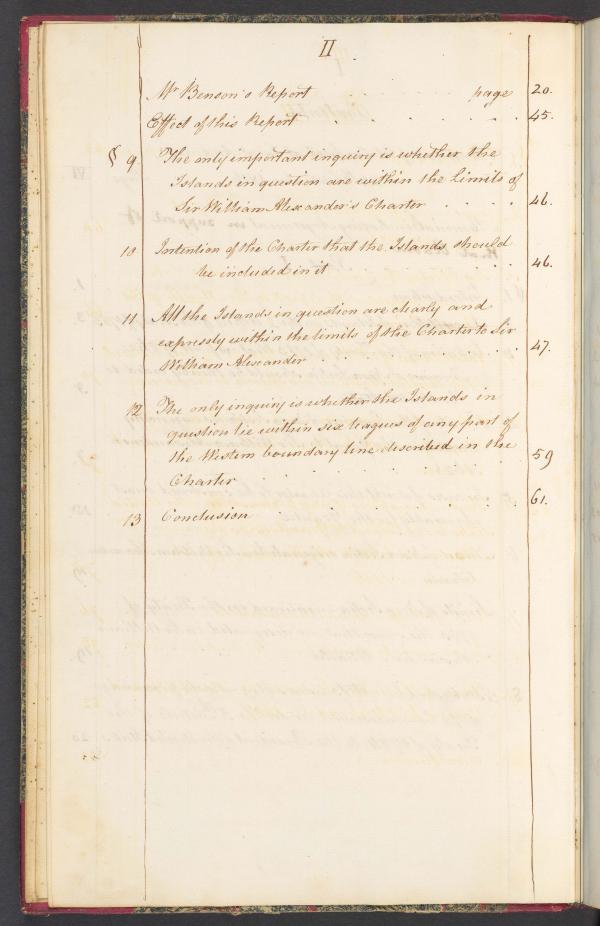 II
Mr Benson's Report page 20.
Effect of this Report 45.
§ 9 The only important inquiry is whether the
Islands in question are within the Limits of
Sir William Alexander's Charter 46.
10 Intention of the Charter that the Islands should
be included in it 46.
11 All the Islands in question are clearly and
expressly within the limits of the Charter to Sir
William Alexander 47.
12 The only inquiry is whether the Islands in
question lie within six leagues of any part of
the Western boundary line described in the
Charter 59
13 Conclusion 61.